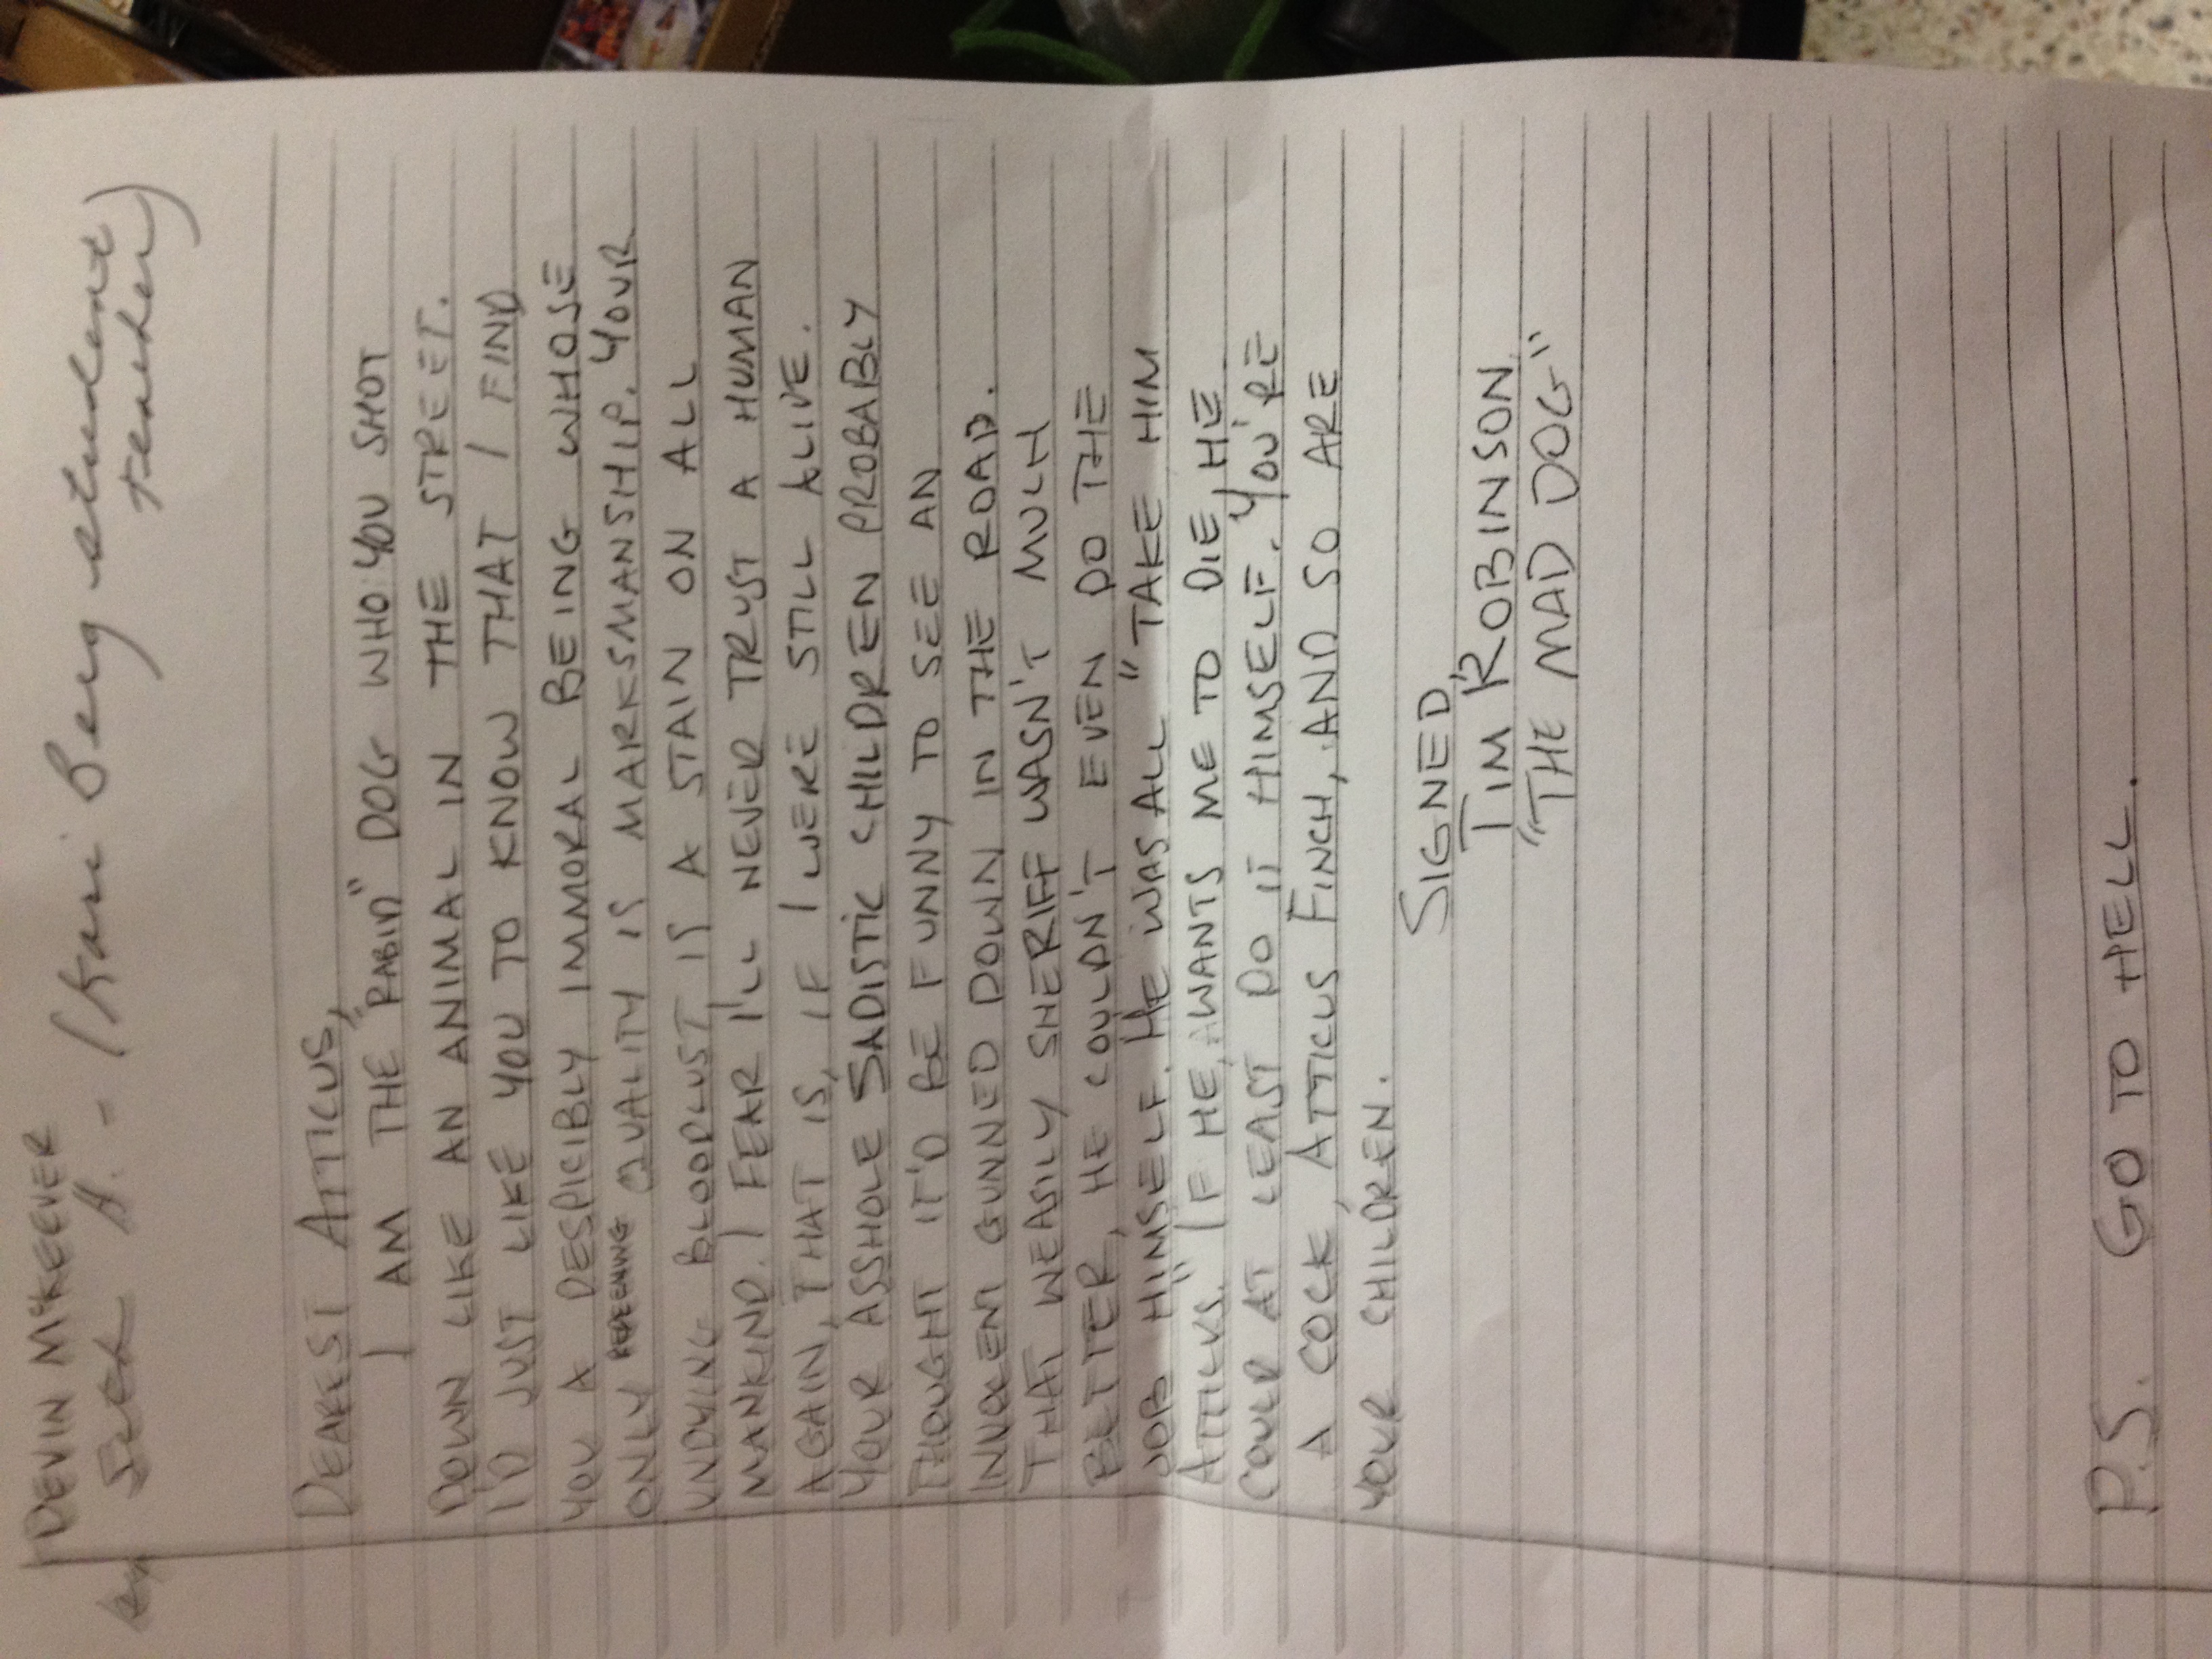 DEVIN McKEEVER
by Seth A. - (Kari Berg student
teacher)
DEAREST ATTICUS,
I AM THE "RABID" DOG WHO YOU SHOT
DOWN LIKE AN ANIMAL IN THE STREET.
I'D JUST LIKE YOU TO KNOW THAT I FIND
YOU A DESPICIBLY IMMORAL BEING WHOSE
ONLY REDEEMING QUALITY IS MARKSMANSHIP. YOUR
UNDYING BLOODLUST IS A STAIN ON ALL
MANKIND. I FEAR I'LL NEVER TRUST A HUMAN
AGAIN, THAT IS, IF I WERE STILL ALIVE.
YOUR ASSHOLE SADISTIC CHILDREN PROBABLY
THOUGHT IT'D BE FUNNY TO SEE AN
INNOCENT GUNNED DOWN IN THE ROAD.
THAT WEASILY SHERIFF WASN'T MUCH
BETTER, HE COULDN'T EVEN DO THE
JOB HIMSELF. HE WAS ALL "TAKE HIM
ATTICUS." IF HE WANTS ME TO DIE HE
COULD AT LEAST DO IT HIMSELF. YOU'RE
A COCK, ATTICUS FINCH, AND SO ARE
YOUR CHILDREN.
SIGNED,
TIM ROBINSON
"THE MAD DOG"
P.S. GO TO HELL.